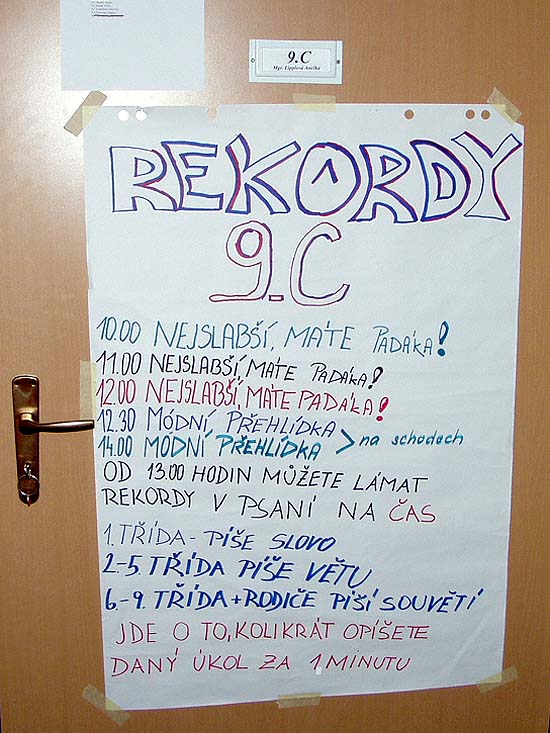 9.C
Mgr. Lipplová Anežka
REKORDY
9.C
10.00 NEJSLABŠÍ, MÁTE PADÁKA!
11.00 NEJSLABŠÍ, MÁTE PADÁKA!
12.00 NEJSLABŠÍ, MÁTE PADÁKA!
12.30 MÓDNÍ PŘEHLÍDKA
14.00 MÓDNÍ PŘEHLÍDKA > na schodech
OD 13.00 HODIN MŮŽETE LÁMAT
REKORDY V PSANÍ NA ČAS
1. TŘÍDA - PÍŠE SLOVO
2.-5. TŘÍDA PÍŠE VĚTU
6.-9. TŘÍDA + RODIČE PÍŠÍ SOUVĚTÍ
JDE O TO, KOLIKRÁT OPÍŠETE
DANÝ ÚKOL ZA 1 MINUTU